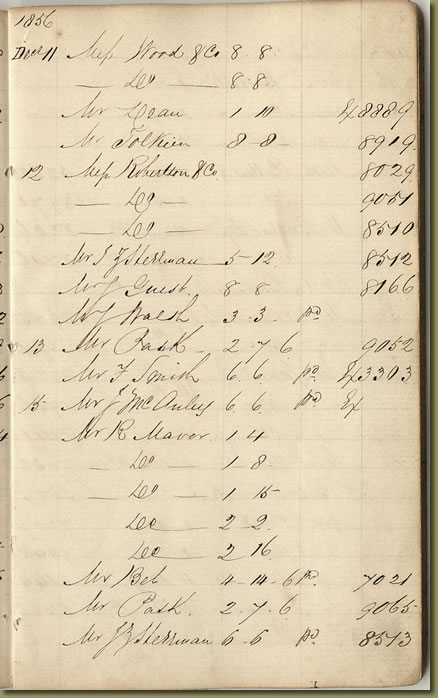 1856
Decr 11 Mess Wood & Co 8 . 8 .
— Do — 8 . 8
Mr Dean 1 10 Ex 8889
Mr Tolkien 8 - 8 - 8919
12 Mess Robertson & Co 8029
— Do — 9051
— Do — 8510
Mr J Z Sherman 5 - 12 8512
Mr J Guest 8 . 8 8166
Mr J Walsh 3 - 3 . pd
13 Mr Pask 2 - 7 . 6 9052
Mr F Smith 6 . 6 . pd Ex 3303
15 Mr J McAnley 6 . 6 . pd Ex
Mr R Mavor 1 4
— Do — 1 8 .
— Do — 1 15
Do — 2 - 2 .
Do — 2 16
Mr Bet 4 - 14 - 6 pd . 7021
Mr Pask . 2 . 7 . 6 9065
Mr J Z Sherman 6 - 6 pd 8513